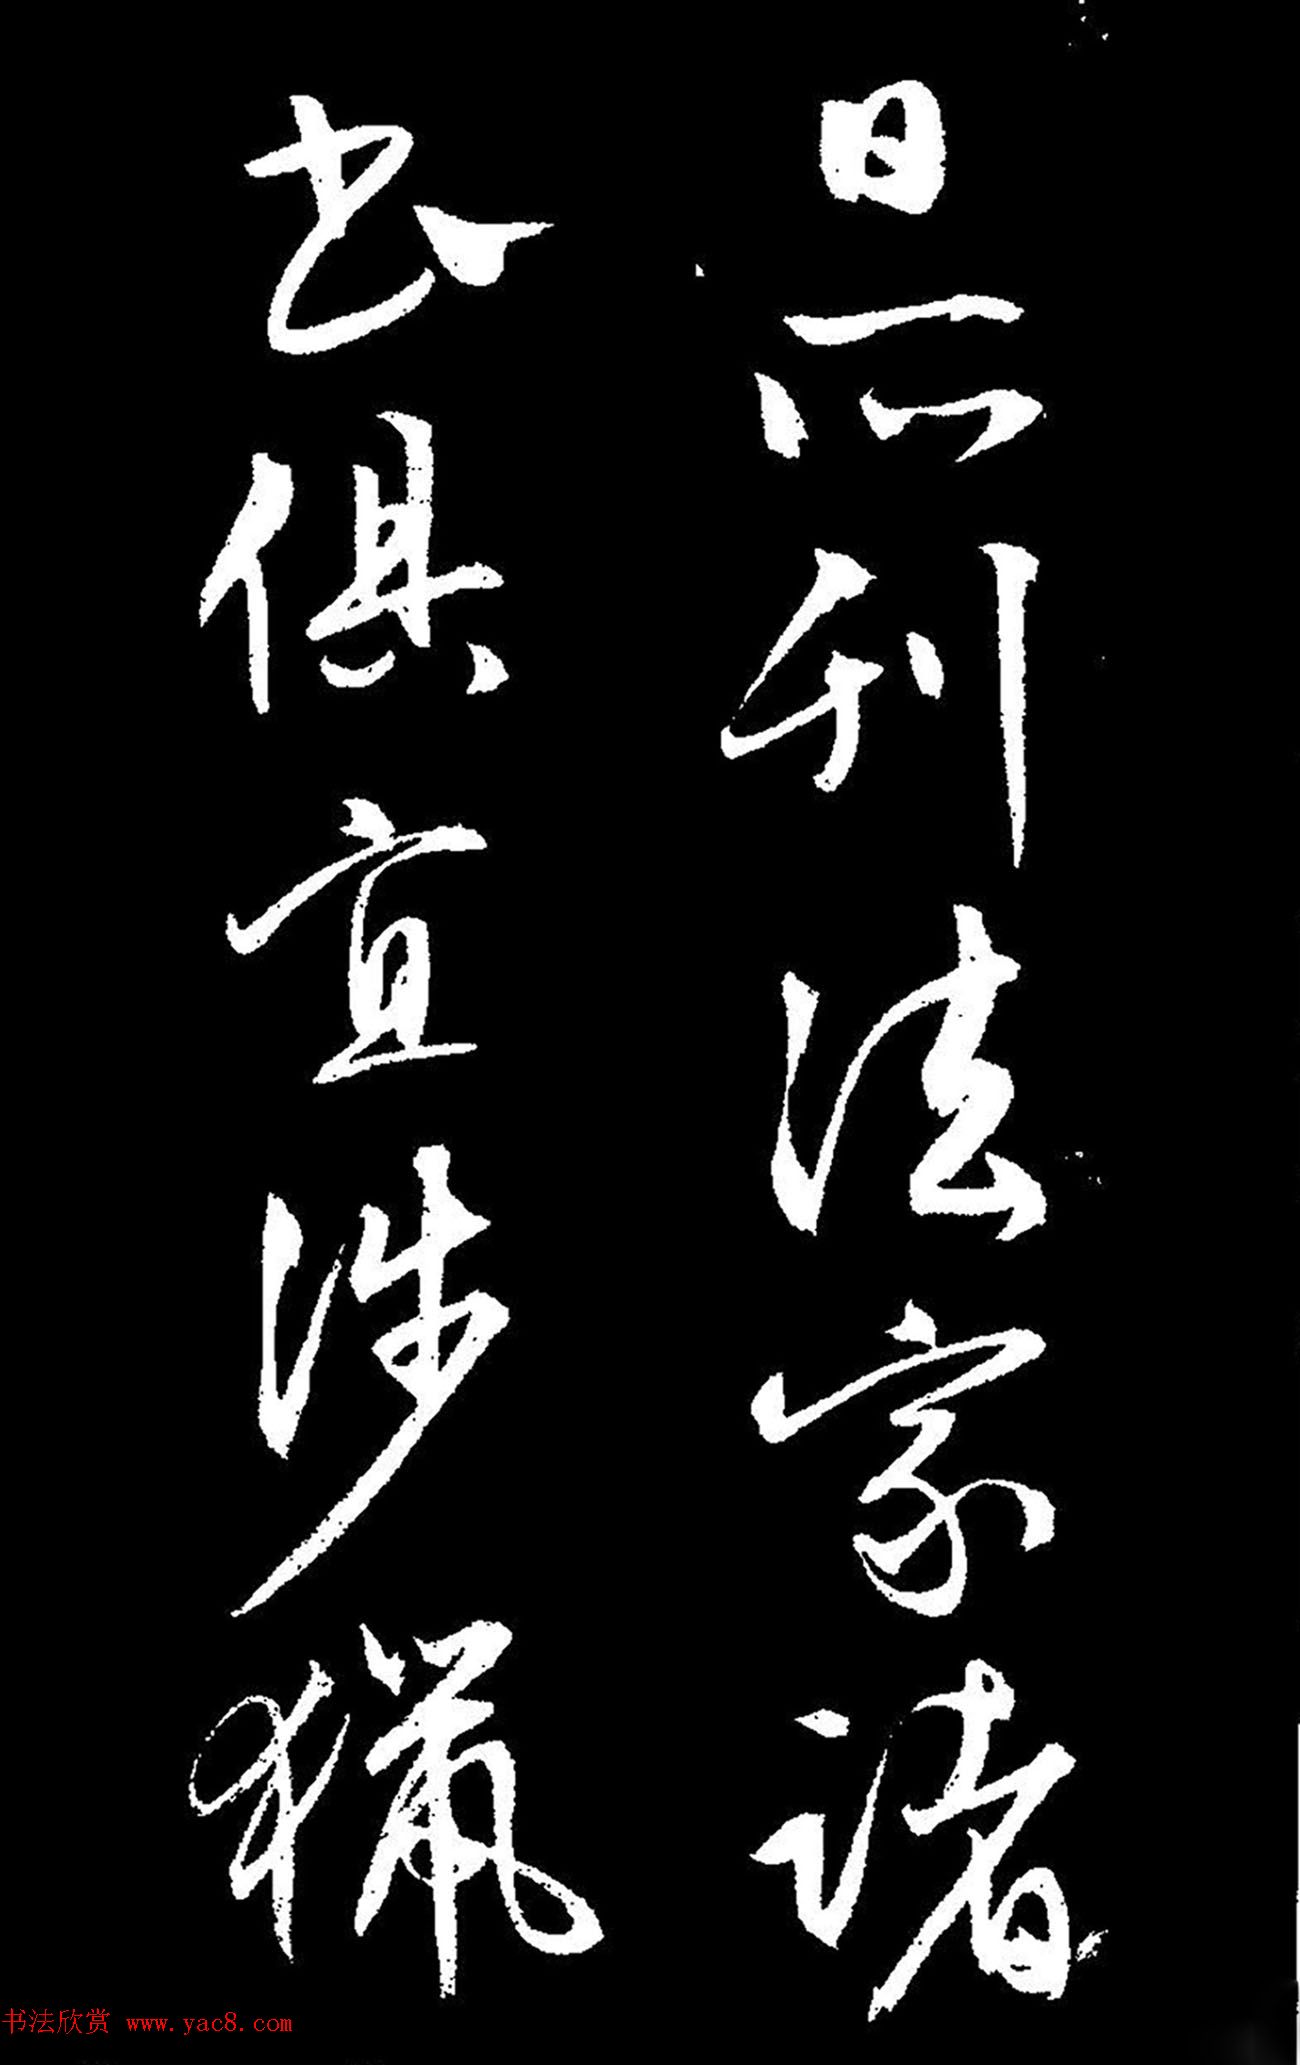 日所刊法家諸
書俱宜涉獵
书法欣赏 www.yac8.com